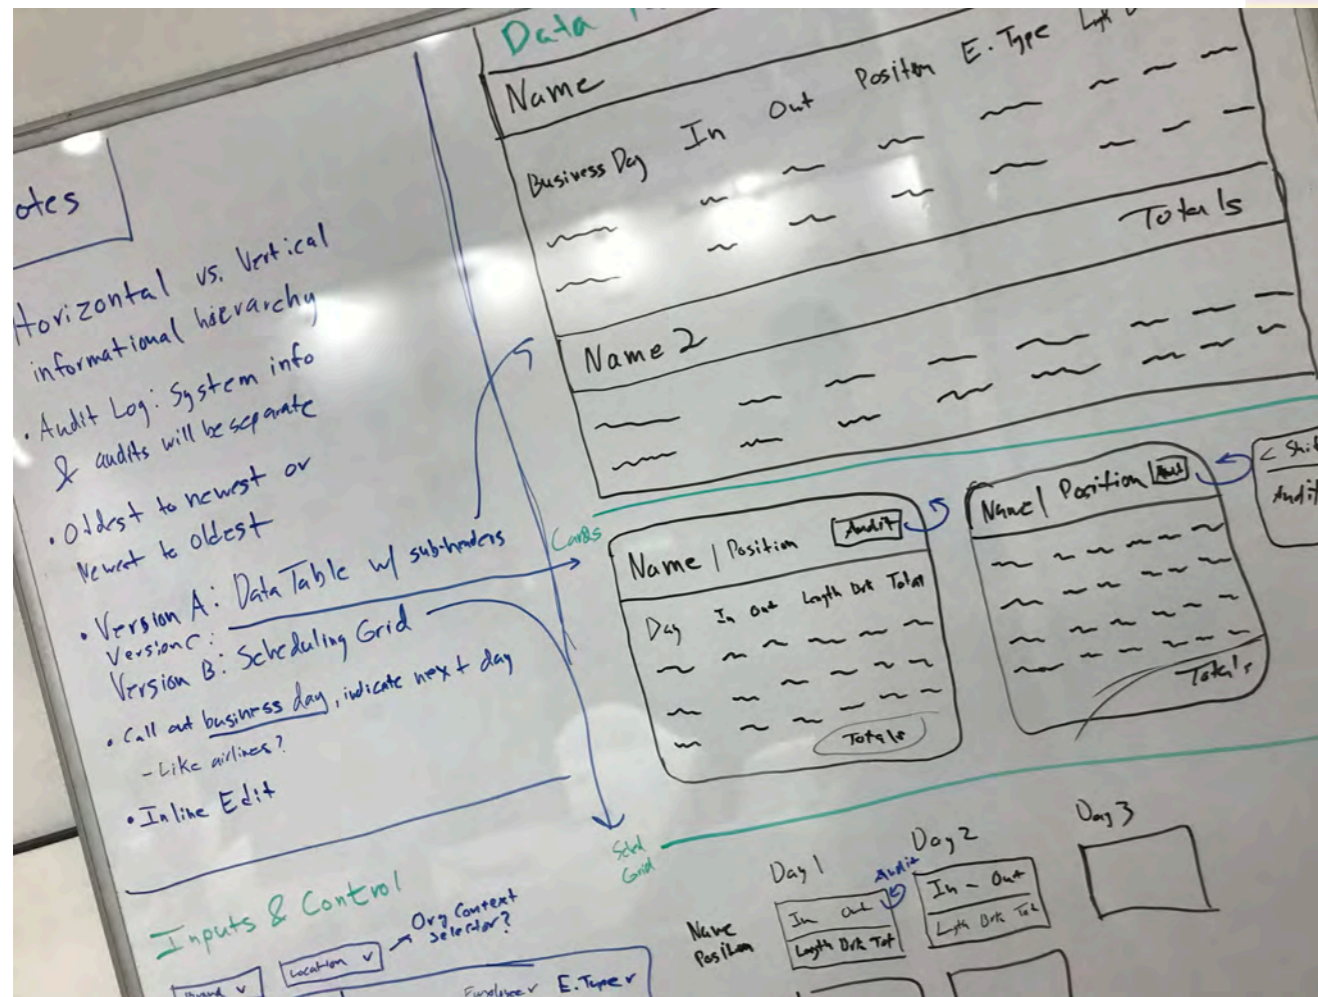 otes
Horizontal vs. Vertical
informational hierarchy
• Audit Log: System info
& audits will be separate
• Oldest to newest or
Newest to oldest
• Version A: Data Table w/ sub-headers
Version C:
Version B: Scheduling Grid
• Call out business day, indicate next day
- Like airlines?
• Inline Edit
Inputs & Control
Location v
Org Context
Selector?
Employee v E. Type v
Data
Name
Business Day In Out Position E. Type
Totals
Name 2
Cards
Name | Position Audit
Day In Out Length Brk Total
Totals
Name | Position Audit
Totals
Audit
Schd
Grid
Day 1 Day 2 Day 3
Audit
Name
Position
In Out
Length Brk Tot
In - Out
Lgth Brk Tot